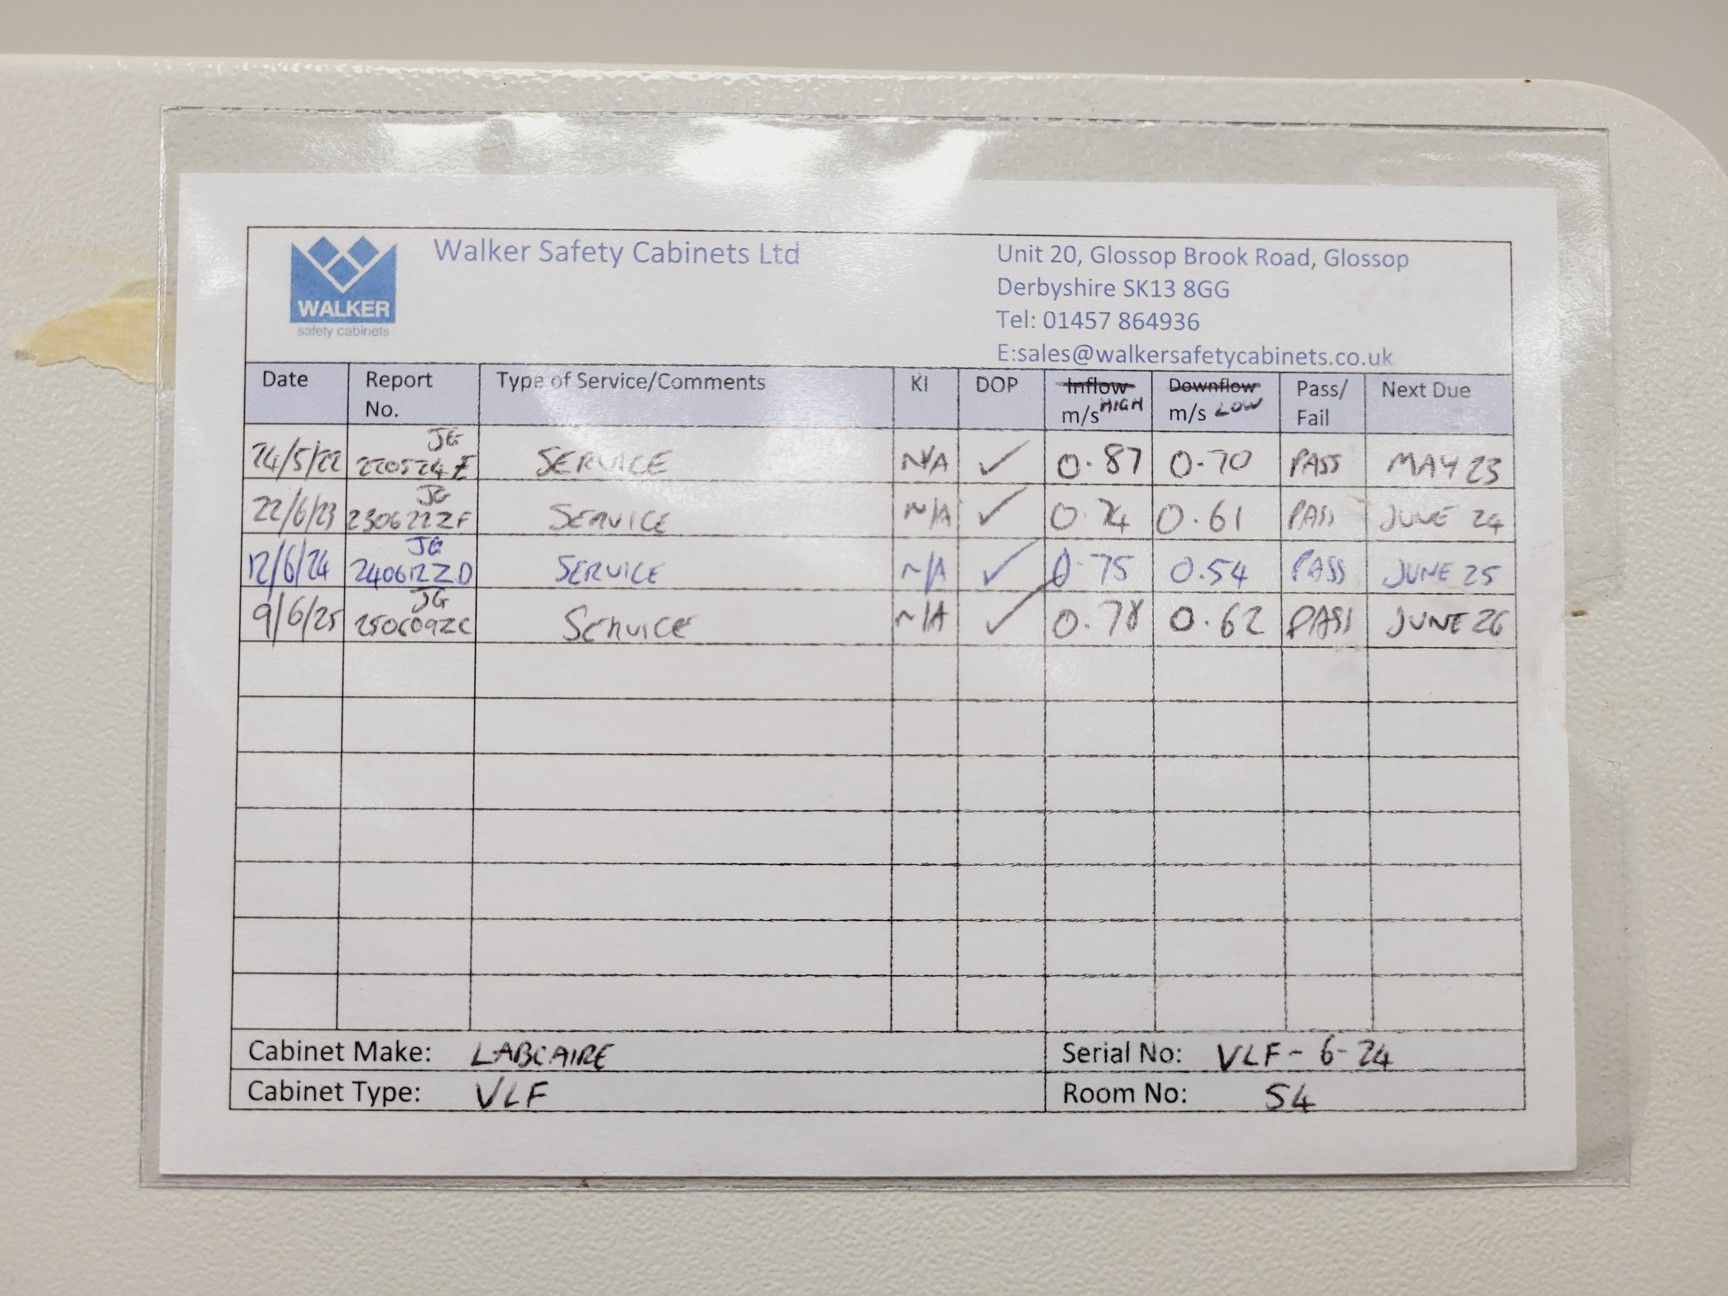 WALKER
safety cabinets
Walker Safety Cabinets Ltd
Unit 20, Glossop Brook Road, Glossop
Derbyshire SK13 8GG
Tel: 01457 864936
E:sales@walkersafetycabinets.co.uk
Date Report No. Type of Service/Comments KI DOP Inflow m/s HIGH Downflow m/s LOW Pass/Fail Next Due
24/5/22 JG 220524F SERVICE N/A ✓ 0.87 0.70 PASS MAY 23
22/6/23 JG 230622ZF SERVICE N/A ✓ 0.74 0.61 PASS JUNE 24
12/6/24 JG 240612ZD SERVICE N/A ✓ 0.75 0.54 PASS JUNE 25
9/6/25 JG 250609ZC SERVICE N/A ✓ 0.78 0.62 PASS JUNE 26
Cabinet Make: LABCAIRE Serial No: VLF-6-24
Cabinet Type: VLF Room No: 54